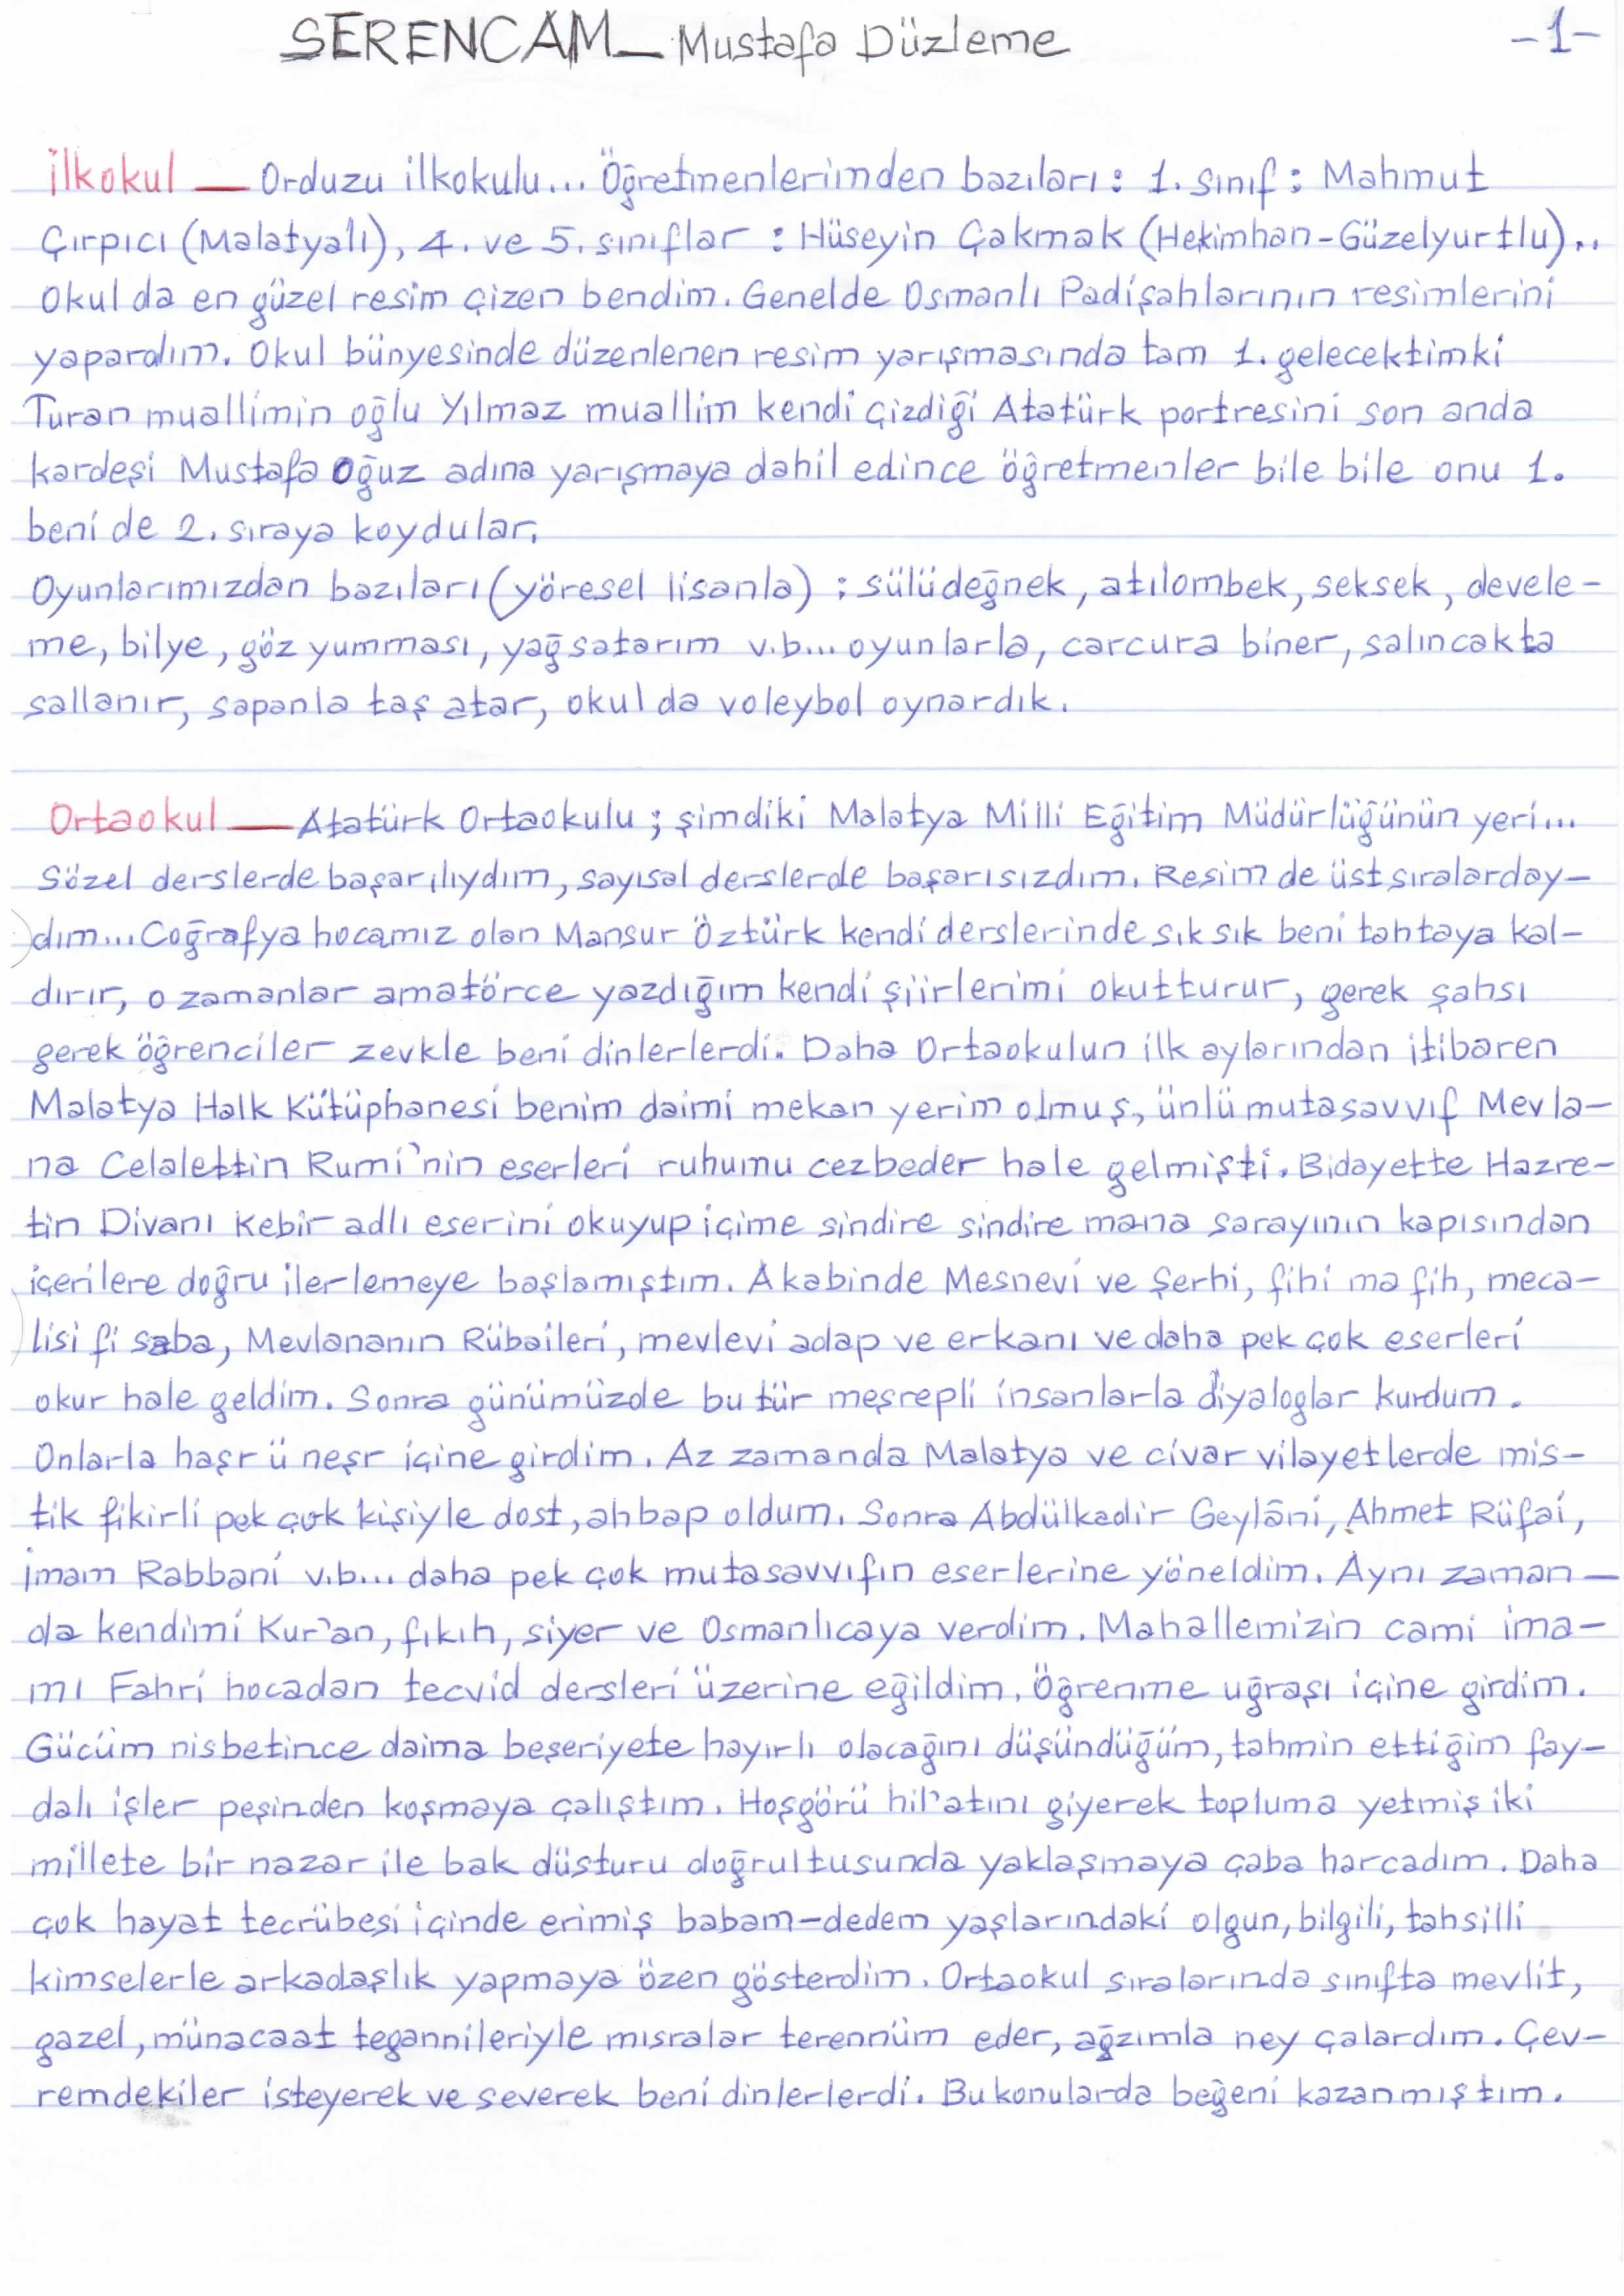 SERENCAM_ Mustafa Düzleme -1-
İlkokul — Orduzu ilkokulu... Öğretmenlerimden bazıları: 1. sınıf: Mahmut
Çırpıcı (Malatyalı), 4. ve 5. sınıflar : Hüseyin Çakmak (Hekimhan-Güzelyurtlu)..
Okul da en güzel resim çizen bendim. Genelde Osmanlı Padişahlarının resimlerini
yapardım. Okul bünyesinde düzenlenen resim yarışmasında tam 1. gelecektimki
Turan muallimin oğlu Yılmaz muallim kendi çizdiği Atatürk portresini son anda
kardeşi Mustafa Oğuz adına yarışmaya dahil edince öğretmenler bile bile onu 1.
beni de 2. sıraya koydular.
Oyunlarımızdan bazıları (yöresel lisanla) : sülüdeğnek, atılombek, seksek, devele-
me, bilye, göz yumması, yağsatarım v.b... oyunlarla, carcura biner, salıncakta
sallanır, sapanla taş atar, okul da voleybol oynardık.
Ortaokul — Atatürk Ortaokulu ; şimdiki Malatya Milli Eğitim Müdürlüğünün yeri...
Sözel derslerde başarılıydım, sayısal derslerde başarısızdım. Resim de üst sıralarday-
dım... Coğrafya hocamız olan Mansur Öztürk kendi derslerinde sık sık beni tahtaya kal-
dırır, o zamanlar amatörce yazdığım kendi şiirlerimi okutturur, gerek şahsı
gerek öğrenciler zevkle beni dinlerlerdi. Daha Ortaokulun ilk aylarından itibaren
Malatya Halk Kütüphanesi benim daimi mekan yerim olmuş, ünlü mutasavvıf Mevla-
na Celalettin Rumi'nin eserleri ruhumu cezbeder hale gelmişti. Bidayette Hazre-
tin Divanı Kebir adlı eserini okuyup içime sindire sindire mana sarayının kapısından
içerilere doğru ilerlemeye başlamıştım. Akabinde Mesnevi ve Şerhi, fihi ma fih, meca-
lisi fi saba, Mevlananın Rübaileri, mevlevi adap ve erkanı ve daha pek çok eserleri
okur hale geldim. Sonra günümüzde bu tür meşrepli insanlarla diyaloglar kurdum.
Onlarla haşr ü neşr içine girdim. Az zamanda Malatya ve civar vilayetlerde mis-
tik fikirli pek çok kişiyle dost, ahbap oldum. Sonra Abdülkadir Geylâni, Ahmet Rüfai,
İmam Rabbani v.b... daha pek çok mutasavvıfın eserlerine yöneldim. Aynı zaman-
da kendimi Kur'an, fıkıh, siyer ve Osmanlıcaya verdim. Mahallemizin cami ima-
mı Fahri hocadan tecvid dersleri üzerine eğildim, Öğrenme uğraşı içine girdim.
Gücüm nisbetince daima beşeriyete hayırlı olacağını düşündüğüm, tahmin ettiğim fay-
dalı işler peşinden koşmaya çalıştım. Hoşgörü hil'atını giyerek topluma yetmiş iki
millete bir nazar ile bak düsturu doğrultusunda yaklaşmaya çaba harcadım. Daha
çok hayat tecrübesi içinde erimiş babam-dedem yaşlarındaki olgun, bilgili, tahsilli
kimselerle arkadaşlık yapmaya özen gösterdim. Ortaokul sıralarında sınıfta mevlit,
gazel, münacaat tegannileriyle mısralar terennüm eder, ağzımla ney çalardım. Çev-
remdekiler isteyerek ve severek beni dinlerlerdi. Bu konularda beğeni kazanmıştım.